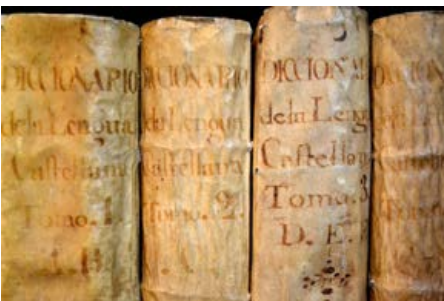 DICCIONARIO
de la Lengua
Castellana
Tomo. 1.
DICCIONARIO
de la Lengua
Castellana
Tomo. 2.
DICCIONA
de la Leng
Castellan
Tomo. 3.
D. E.